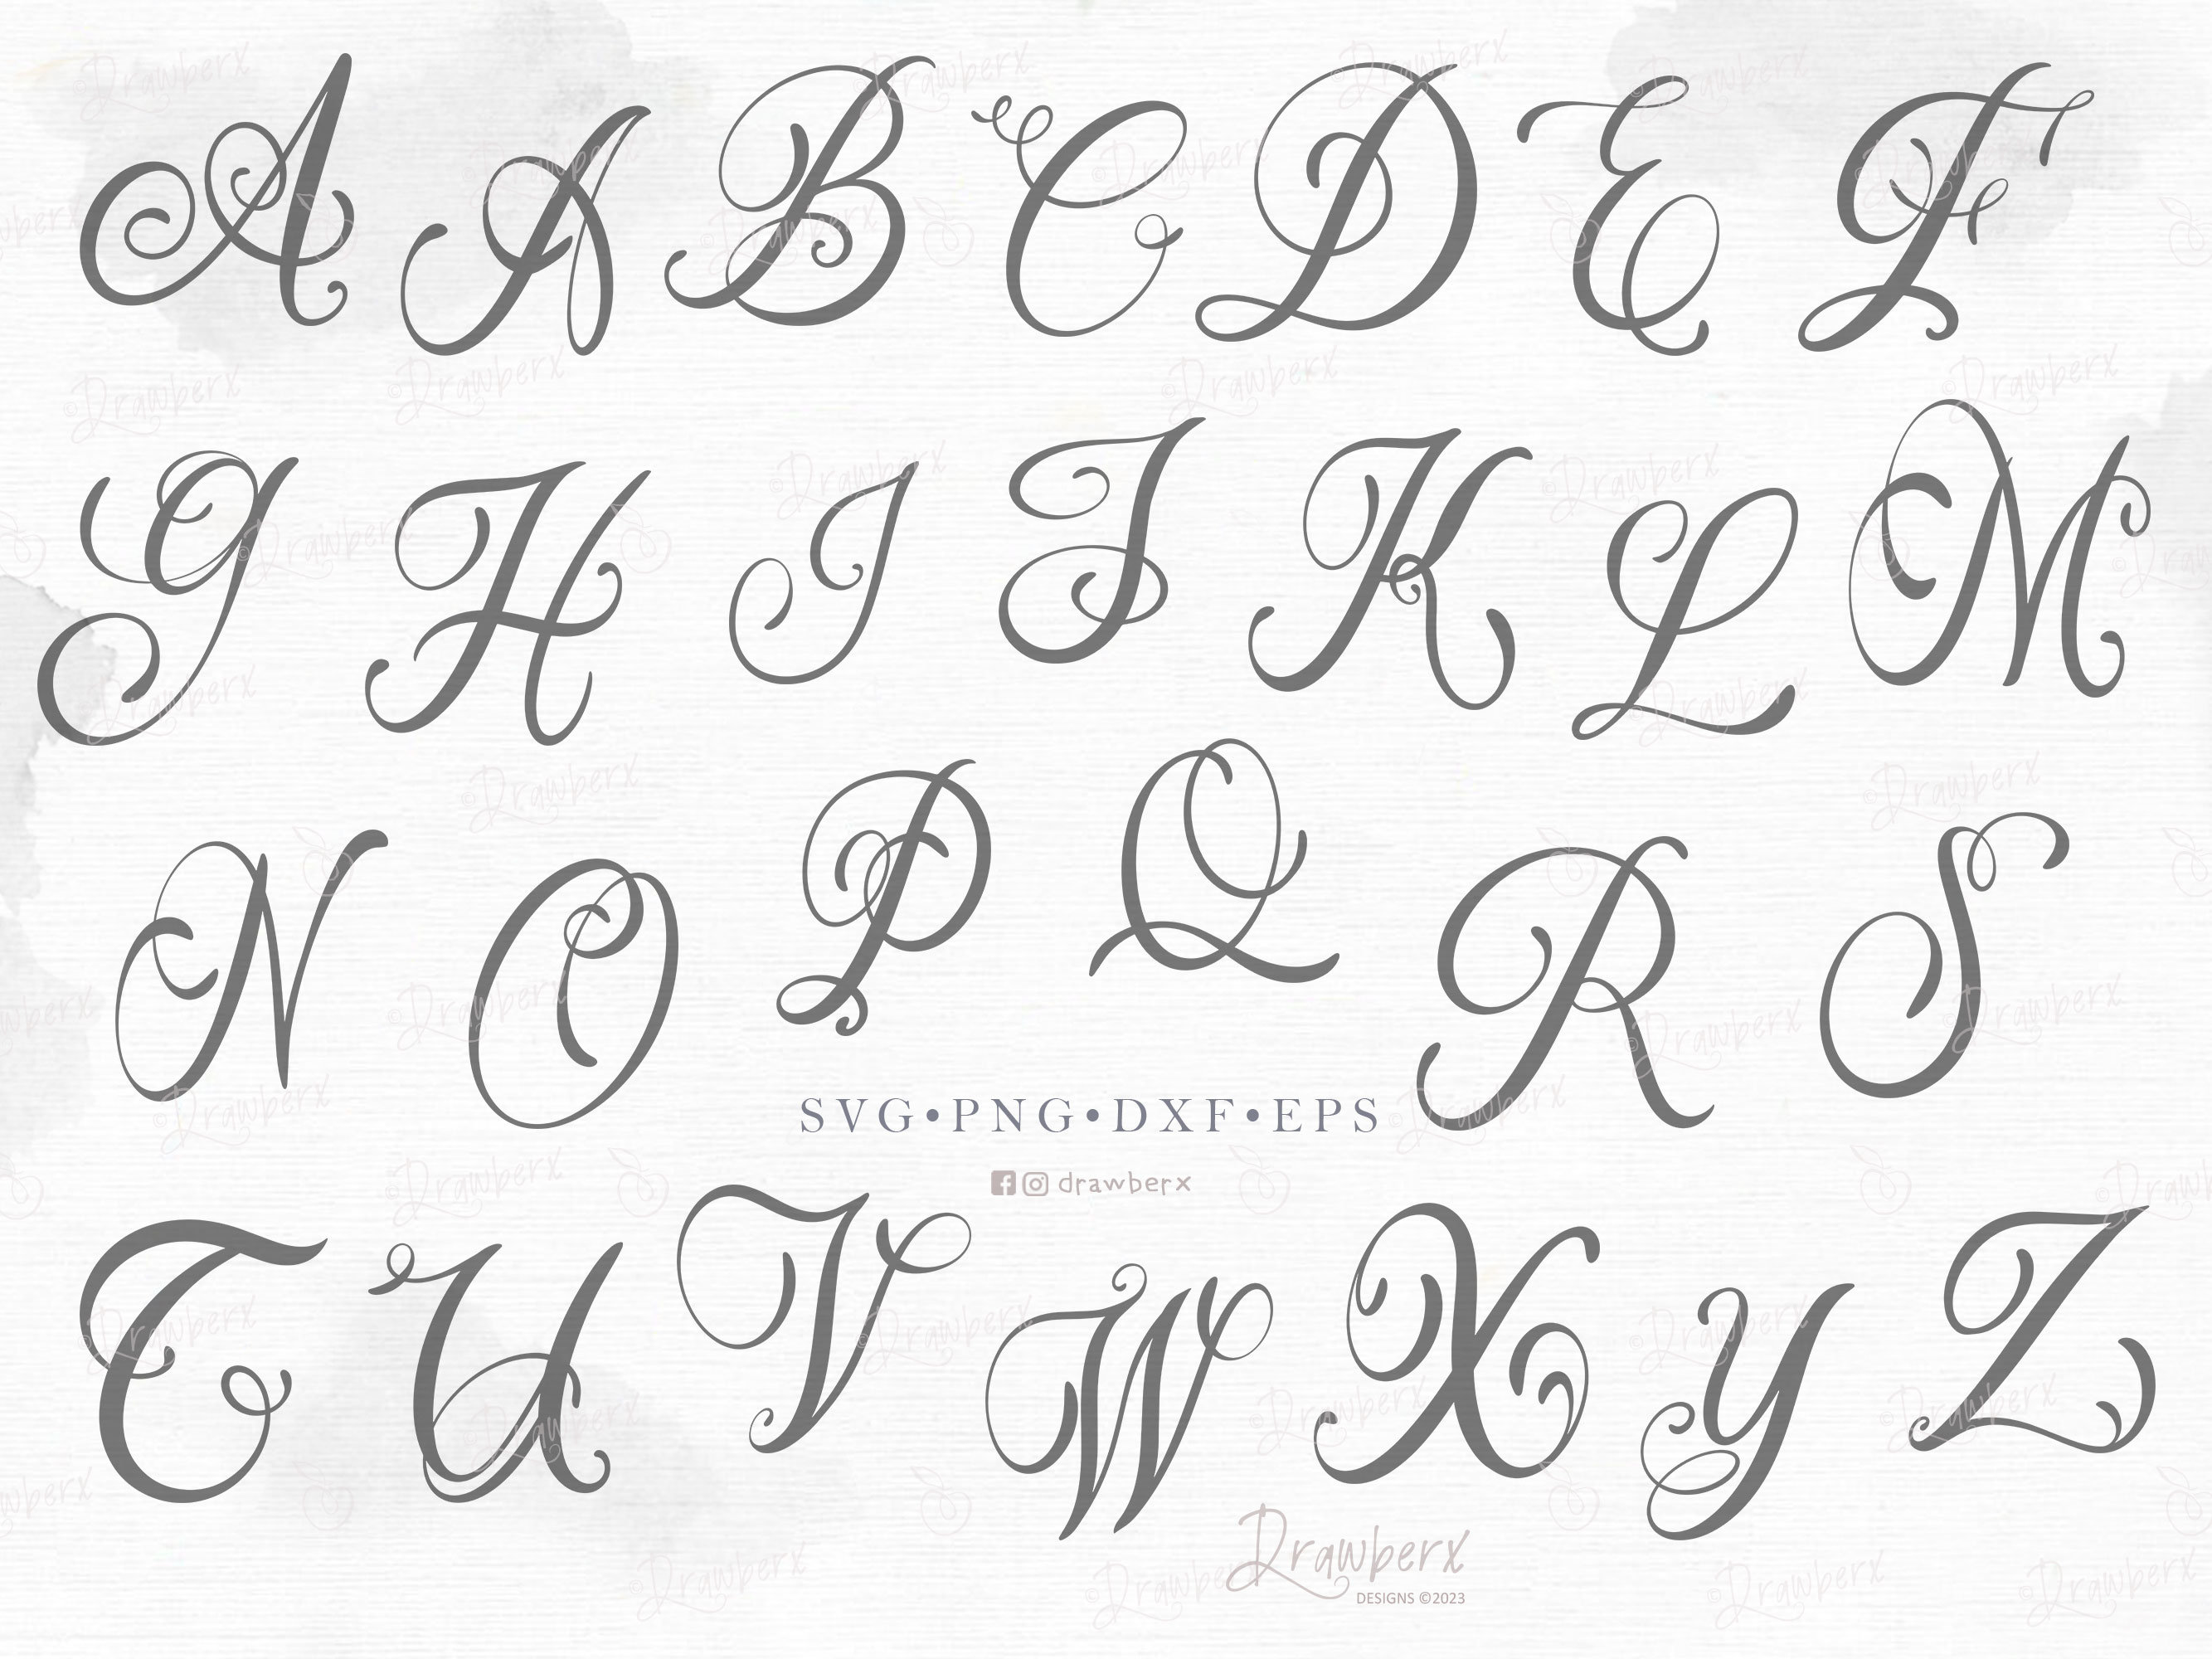 A A B C D E F
G H I J K L M
N O P Q R S
SVG•PNG•DXF•EPS
drawberx
T U V W X Y Z
Drawberx
DESIGNS ©2023